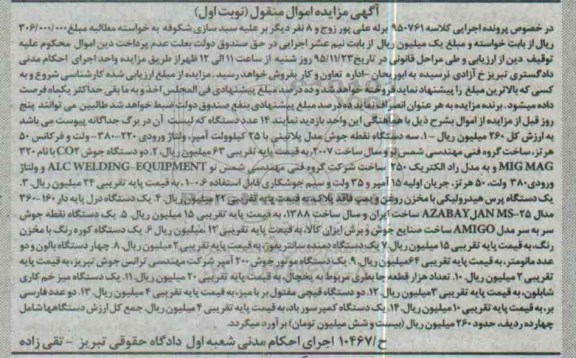 آگهی مزایده اموال منقول (نوبت اول)
در خصوص پرونده اجرایی کلاسه ۹۵۰۷۶۱ برله علی پور زوج و ۸ نفر دیگر بر علیه سبد سازی شکوفه به خواسته مطالبه مبلغ ۳۰۶/۰۰۰/۰۰۰
ریال از بابت خواسته و مبلغ یک میلیون ریال از بابت نیم عشر اجرایی در حق صندوق دولت بعلت عدم پرداخت دین اموال محکوم علیه
توقیف دین از ارزیابی و طی مراحل قانونی در تاریخ ۹۵/۱۱/۲۳ روز شنبه از ساعت ۱۱ الی ۱۲ ظهر از طریق مزایده واحد اجرای احکام مدنی
دادگستری تبریز خ آزادی نرسیده به ابوریحان - اداره تعاون و کار بفروش خواهد رسید. مزایده از مبلغ ارزیابی شده کارشناسی شروع و به
کسی که بالاترین مبلغ را پیشنهاد نماید فروخته خواهد شد و ده درصد مبلغ پیشنهادی فی المجلس اخذ و به ما بقی حداکثر یکماه فرصت
داده میشود. برنده مزایده به هر عنوان انصراف نماید ده درصد مبلغ پیشنهادی بنفع صندوق دولت ضبط خواهد شد طالبین می توانند پنج
روز قبل از مزایده از اموال بشرح ذیل با هماهنگی این واحد بازدید نمایند. ۱۴ عدد دستگاه که لیست آن در برگ جداگانه پیوست می باشد
به ارزش کل ۲۶۰ میلیون ریال - ۱. سه دستگاه نقطه جوش مدل پلاتینی با ۲۵ کیلوولت آمپر، ولتاژ ورودی ۲۲۰-۳۸۰ ولت و فرکانس ۵۰
هرتز، ساخت گروه فنی مهندسی شمس نو و سال ساخت ۲۰۰۷، به قیمت پایه تقریبی ۶۳ میلیون ریال. ۲. دو دستگاه جوش CO۲ با تام ۳۲۰
MIG MAG و به مدل راد الکتریک ۲۵۰ ساخت شرکت گروه فنی مهندسی شمس نو ALC WELDING-EQUIPMENT و ولتاژ
ورودی ۳۸۰ ولت، ۵۰ هرتز، جریان اولیه ۱۵ آمپر و ۳۵ ولت و سیم جوشکاری قابل استفاده ۰.۶-۱، به قیمت پایه تقریبی ۲۴ میلیون ریال. ۳.
یک دستگاه پرس هیدرولیکی با مخزن روغن و پمپ فاقد پلاک به قیمت پایه تقریبی ۲۲ میلیون ریال. ۴. یک دستگاه دریل پایه دار ۱۶۰-۳۶۰
مدال AZABAYJAN MS-۲۵ ساخت ایران و سال ساخت ۱۳۸۸، به قیمت پایه تقریبی ۱۵ میلیون ریال. ۵. یک دستگاه نقطه جوش
سر به سر مدل AMIGO ساخت صنایع جوش و برش ایران کالا، به قیمت پایه تقریبی ۱۲ میلیون ریال. ۶. یک دستگاه کوره رنگ با مخزن
رنگ، به قیمت پایه تقریبی ۱۵ میلیون ریال. ۷. یک دستگاه دمنده سانتریفیوژ، به قیمت پایه تقریبی ۲ میلیون ریال. ۸. چهار دستگاه بالون و دو
عدد مانومتر، به قیمت پایه تقریبی ۶۴ میلیون ریال. ۹. یک دستگاه موتور جوش ۲۰۰ آمپر شرکت مهندسی ترانس جوش تبریز، به قیمت پایه
تقریبی ۲ میلیون ریال. ۱۰. تعداد هزار قطعه جابطری مربوط به یخچال، به قیمت پایه تقریبی ۲۰ میلیون ریال. ۱۱. یک دستگاه میز خم کاری
شابلون، به قیمت پایه تقریبی ۳ میلیون ریال. ۱۲. دو دستگاه قیچی مفتول بر با میز، به قیمت پایه تقریبی ۴ میلیون ریال. ۱۳. دو عدد فارسی
بر، به قیمت پایه تقریبی ۱۰ میلیون ریال. ۱۴. یک دستگاه کمپرسور باد، به قیمت پایه تقریبی ۴ میلیون ریال. جمع کل ارزش دستگاهها شامل
چهارده ردیف، حدود ۲۶۰ میلیون ریال (بیست و شش میلیون تومان) بر آورد میگردد.
ح/۱۰۴۶۷ اجرای احکام مدنی شعبه اول دادگاه حقوقی تبریز - تقی زاده